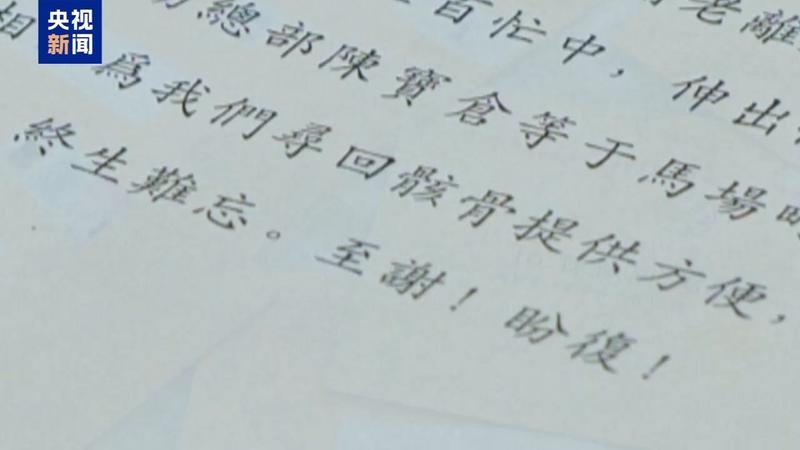 央视
新闻
老離
百忙中，伸出
總部陳寶倉等于馬場
相 爲我們尋回骸骨提供方便，
終生難忘。至謝！盼復！